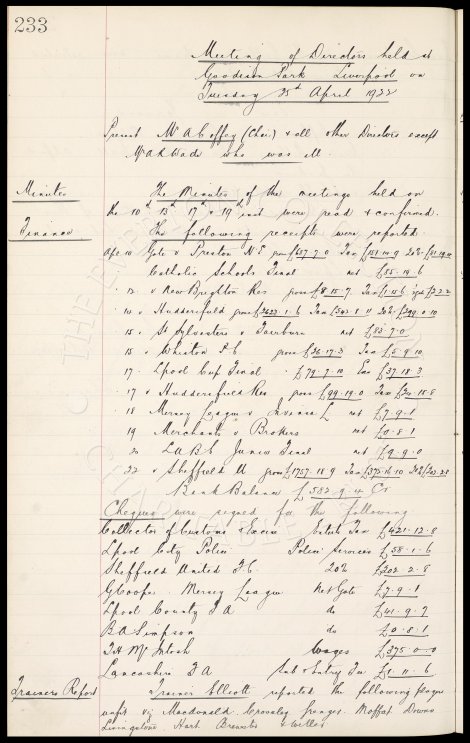 233
Meeting of Directors held at
Goodison Park Liverpool on
Tuesday 25th April 1922
Present Mr A Coffey (Chair) & all other Directors except
Mr A R Wade who was ill.
Minutes
The Minutes of the meetings held on
the 10th 13th 17th & 19th inst were read & confirmed.
Finance
The following receipts were reported.
Apl 10 Gate v Preston N E gross £657.7.0 Tax £151.14.9 20%
Catholic Schools Final net £55.19.6
v New Brighton Res gross £8.15.7 Tax £1.15.6
v Huddersfield gross 20% £299.0.10
15 St Sylvesters v Fairburn net £83.7.0
15 v Whiston P.C. gross £26.17.3 Tax £6.9.10
17 Lpool Cup Final £79.7.10 Tax £37.18.3
17 v Huddersfield Res gross £99.19.0 Tax £24.15.8
18 Mersey League v net £7.9.1
19 Merchants v Brokers net £0.8.1
20 L A B C Junior Final net £9.9.0
22 v Sheffield U gross £1757.18.9 Tax £375.16.10
Bank Balance £582.9.4 Cr
Cheques were signed for the following
Collector of Customs & Excise Entets Tax £421.12.8
Lpool City Police Police Services £58.1.6
Sheffield United F.C. 20% £202.2.8
G Cooper Mersey League Net Gate £7.9.1
Lpool County F A do £41.9.7
B A Simpson do £0.8.1
T H McIntosh Wages £375.0.0
Lancashire F A Sub & Entry Fee £1.11.6
Trainers Report
Trainer Elliott reported the following players
unfit viz Macdonald. Crossley Grenyer. Moffat Downs
Livingstone. Hart Brewster & Weller